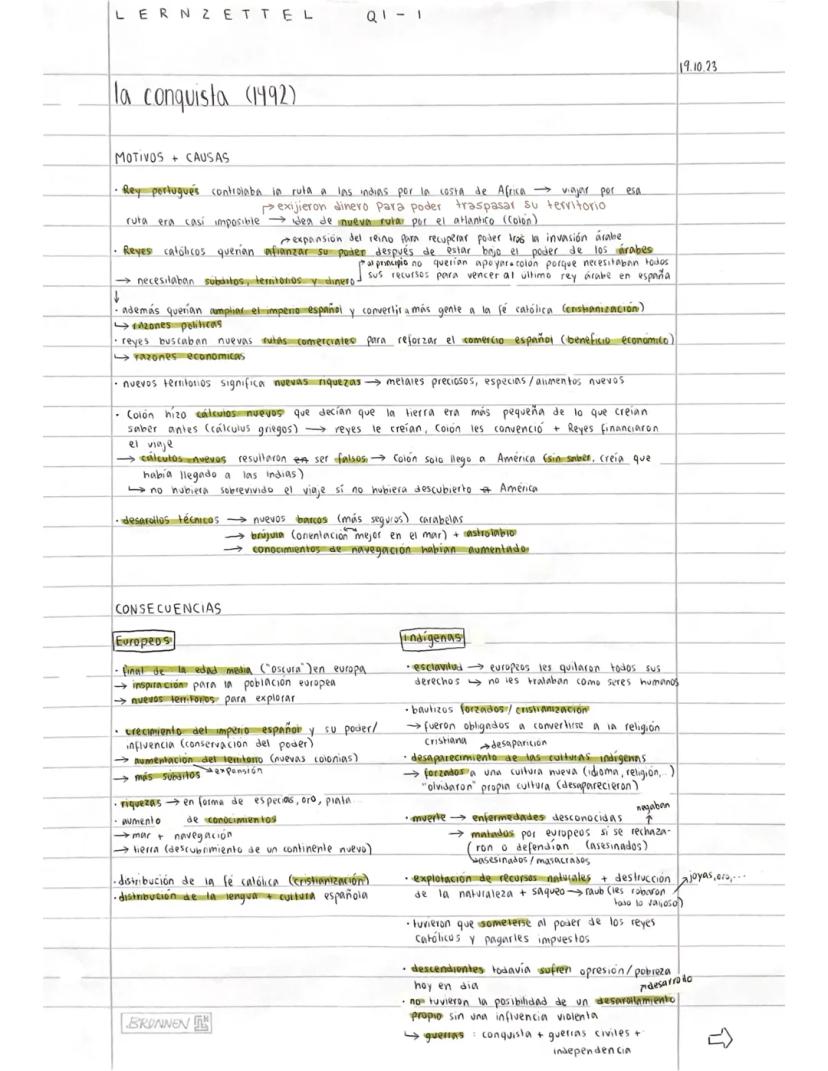 LERNZETTEL Q1-1
19.10.23
la conquista (1492)
MOTIVOS + CAUSAS
· Rey portugués controlaba la ruta a las indias por la costa de Africa → viajar por esa
↱ exijieron dinero para poder traspasar su territorio
ruta era casi imposible → idea de nueva ruta por el atlantico (Colón)
↱ expansión del reino para recuperar poder tras la invasión árabe
· Reyes católicos querían afianzar su poder después de estar bajo el poder de los árabes
↱ al principio no querían apoyar a colón porque necesitaban todos
→ necesitaban súbditos, territorios y dinero
sus recursos para vencer al último rey árabe en españa
↓
· además querían ampliar el imperio español y convertir a más gente a la fé católica (cristianización)
↳ razones políticas
· reyes buscaban nuevas rutas comerciales para reforzar el comercio español (beneficio económico)
↳ razones economicas
· nuevos territorios significa nuevas riquezas → metales preciosos, especias/alimentos nuevos
· Colón hizo cálculos nuevos que decían que la tierra era más pequeña de lo que creían
saber antes (cálculus griegos) → reyes le creían, Colón les convenció + Reyes financiaron
el viaje
→ cálculos nuevos resultaron en ser falsos → Colón solo llego a América (sin saber, creía que
había llegado a las Indias)
↳ no hubiera sobrevivido el viaje si no hubiera descubierto a América
· desarollos técnicos → nuevos barcos (más seguros) carabelas
→ brújula (orientación mejor en el mar) + astrolabio
→ conocimientos de navegación habían aumentado
CONSECUENCIAS
Europeos
· final de la edad media ("oscura") en europa
→ inspiración para la población europea
→ nuevos territorios para explorar
· crecimiento del imperio español y su poder/
influencia (conservación del poder)
→ aumentación del territorio (nuevas colonias)
→ más súbditos
→ expansión
· riquezas → en forma de especias, oro, plata...
· aumento de conocimientos
→ mar + navegación
→ tierra (descubrimiento de un continente nuevo)
· distribución de la fé católica (cristianización)
· distribución de la lengua + cultura española
Indígenas
· esclavitud → europeos les quitaron todos sus
derechos → no les trataban como seres humanos
· bautizos forzados/cristianización
→ fueron obligados a convertirse a la religión
cristiana
→ desaparición
· desaparecimiento de las culturas indígenas
→ forzados a una cultura nueva (idioma, religión,...)
"olvidaron" propia cultura (desaparecieron)
negaban
↑
· muerte → enfermedades desconocidas
→ matados por europeos si se rechaza-
ron o defendían (asesinados)
↳ asesinados/masacrados
· explotación de recursos naturales + destrucción
↗ joyas, oro,...
de la naturaleza + saqueo → raub (les robaron
todo lo valioso)
· tuvieron que someterse al poder de los reyes
católicos y pagarles impuestos
· descendientes todavía sufren opresión/pobreza
hoy en día
↗ desarrollo
· no tuvieron la posibilidad de un desarollamiento
propio sin una influencia violenta
↳ guerras : conquista + guerras civiles +
independencia
BRUNNEN
⇨